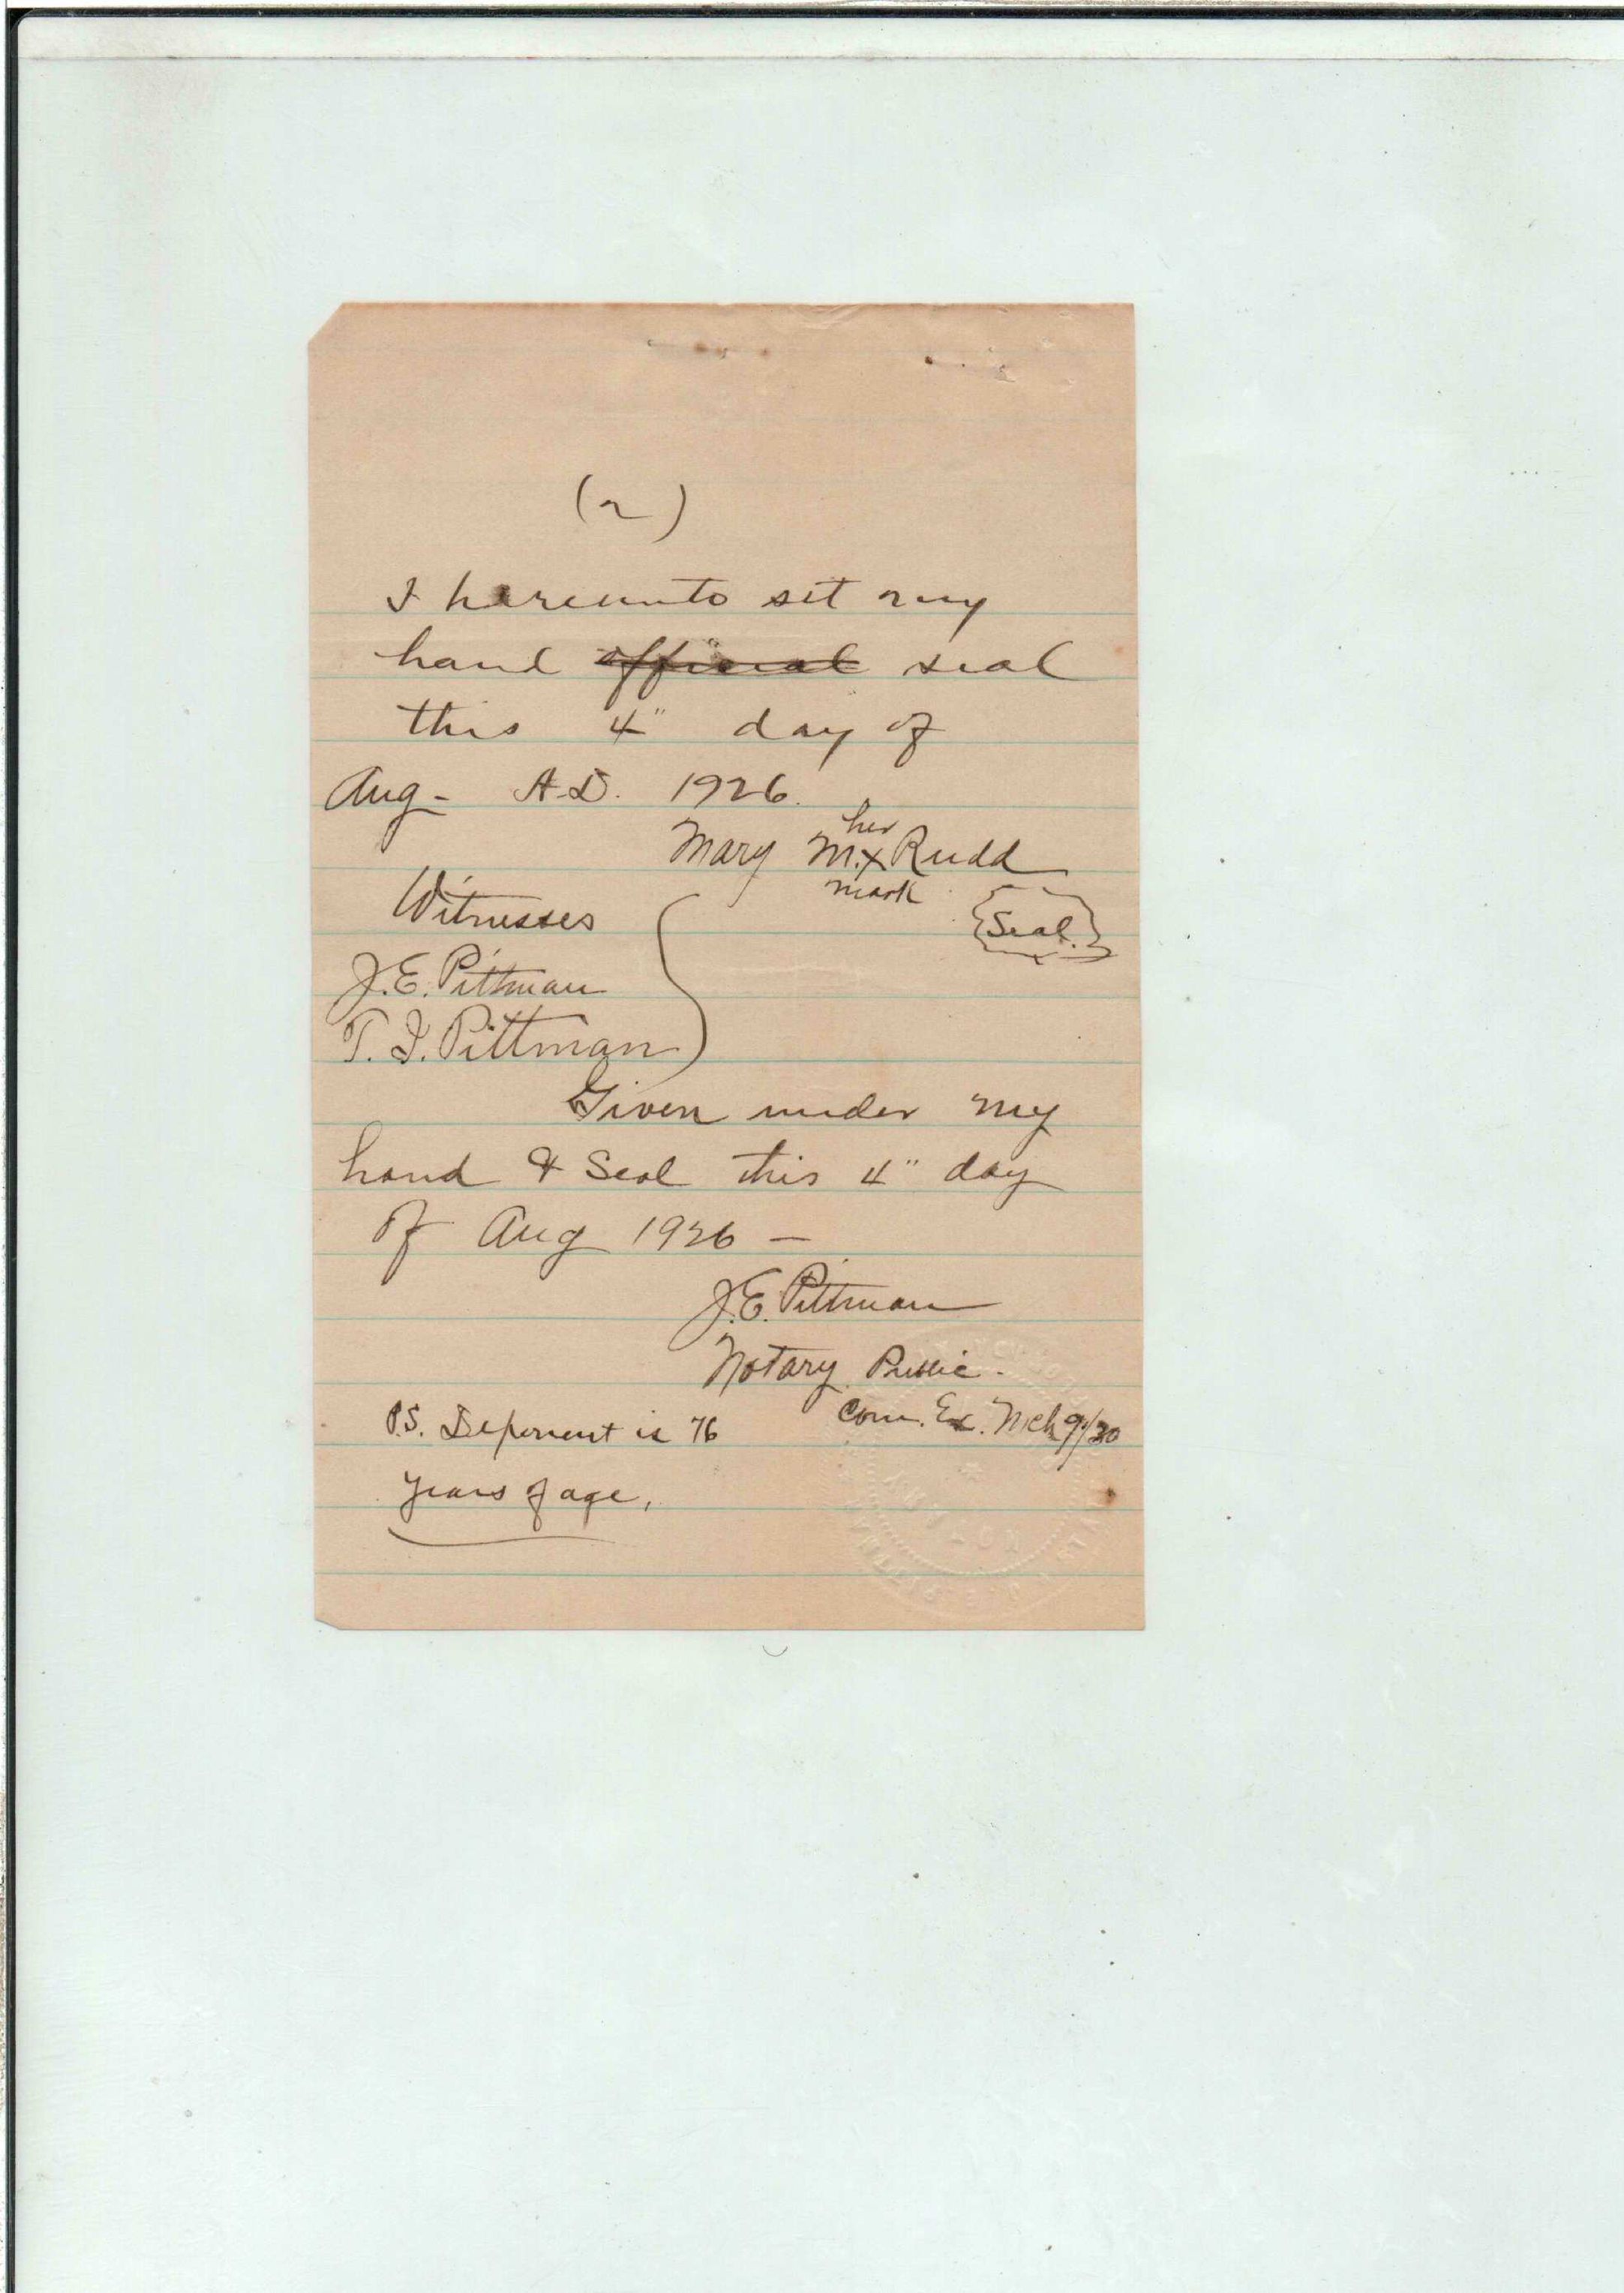 (2)
I hereunto set my
hand official seal
this 4" day of
Aug- A.D. 1926.
her
Mary M. x Rudd
mark
Witnesses
{Seal.}
J.E. Pittman
T. I. Pittman
Given under my
hand & Seal this 4" day
of Aug 1926 —
J.E. Pittman
Notary Public.
Com. Ex. Mch 9/30
P.S. Deponent is 76
years of age.